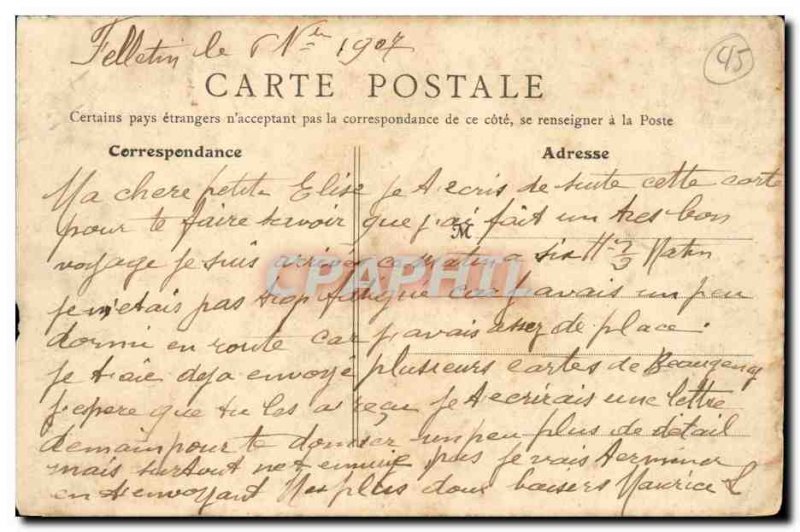 Felletin le 6 Nbre 1907
45
CARTE POSTALE
Certains pays étrangers n'acceptant pas la correspondance de ce côté, se renseigner à la Poste
Correspondance Adresse
Ma chere petite Elise je t ecris de suite cette carte
pour te faire savoir que j'ai fait un tres bon
M
voyage je suis arrivé ce matin a six H Matin
CPAPHIL
je n'etais pas trop fatigué car j'avais un peu
dormi en route car j'avais assez de place.
je t'aie deja envoyé plusieurs cartes de Beaugency
j'espere que tu les a reçu je t ecrirais une lettre
demain pour te donner un peu plus de détail
mais surtout ne t ennuie pas je vais terminer
en t envoyant Mes plus doux baisers Maurice L